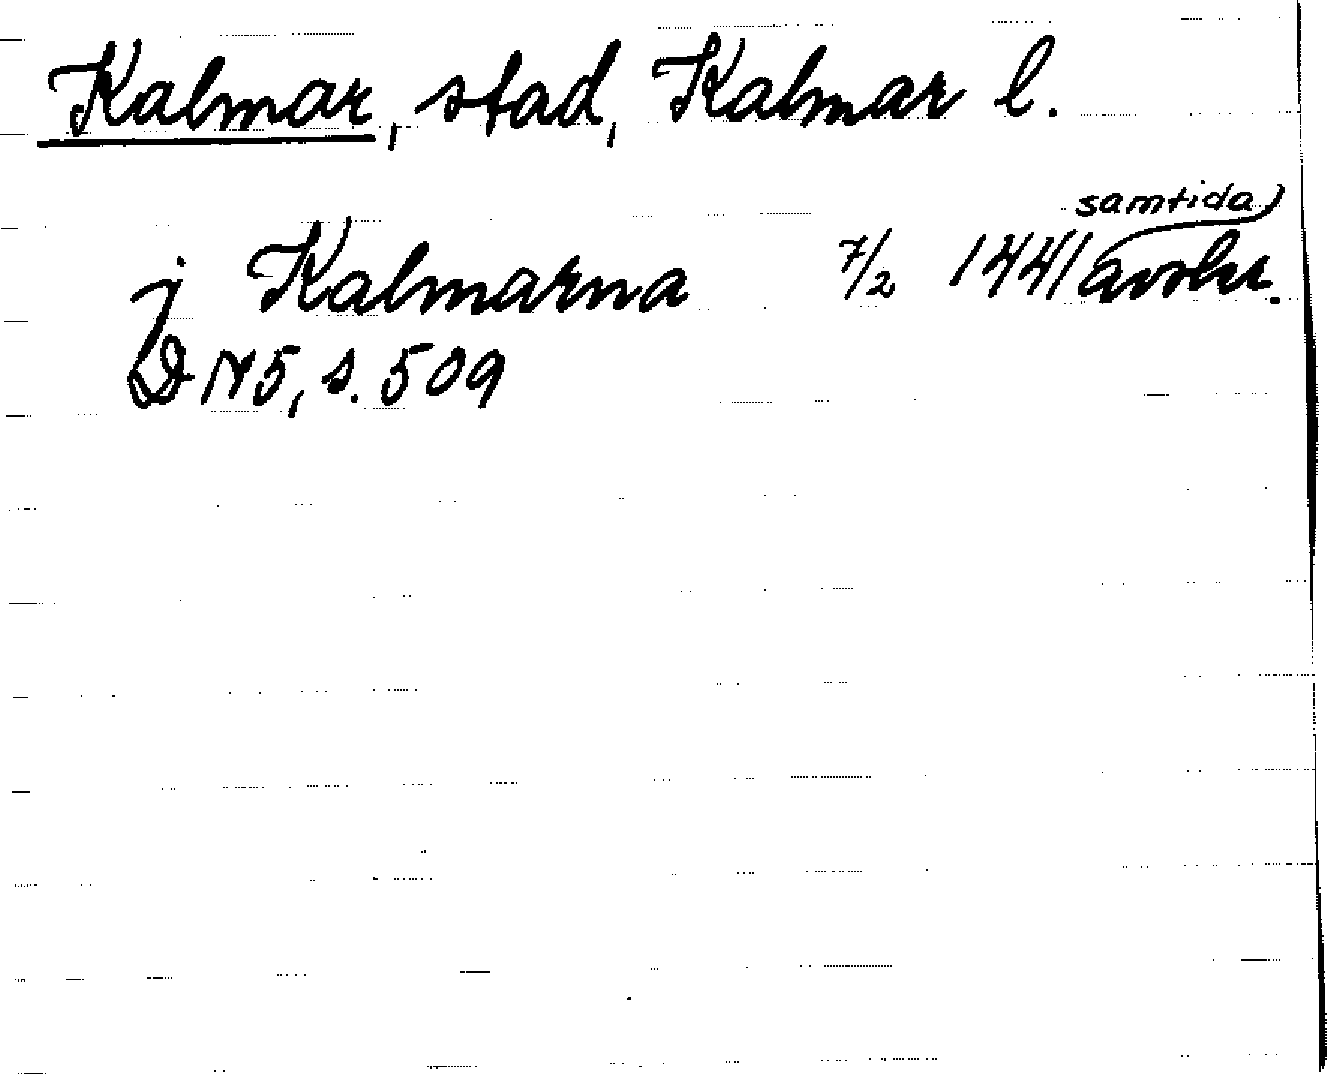 Kalmar, stad, Kalmar l.
j Kalmarna 7/2 1441 samtida avskr.
DN5, s. 509